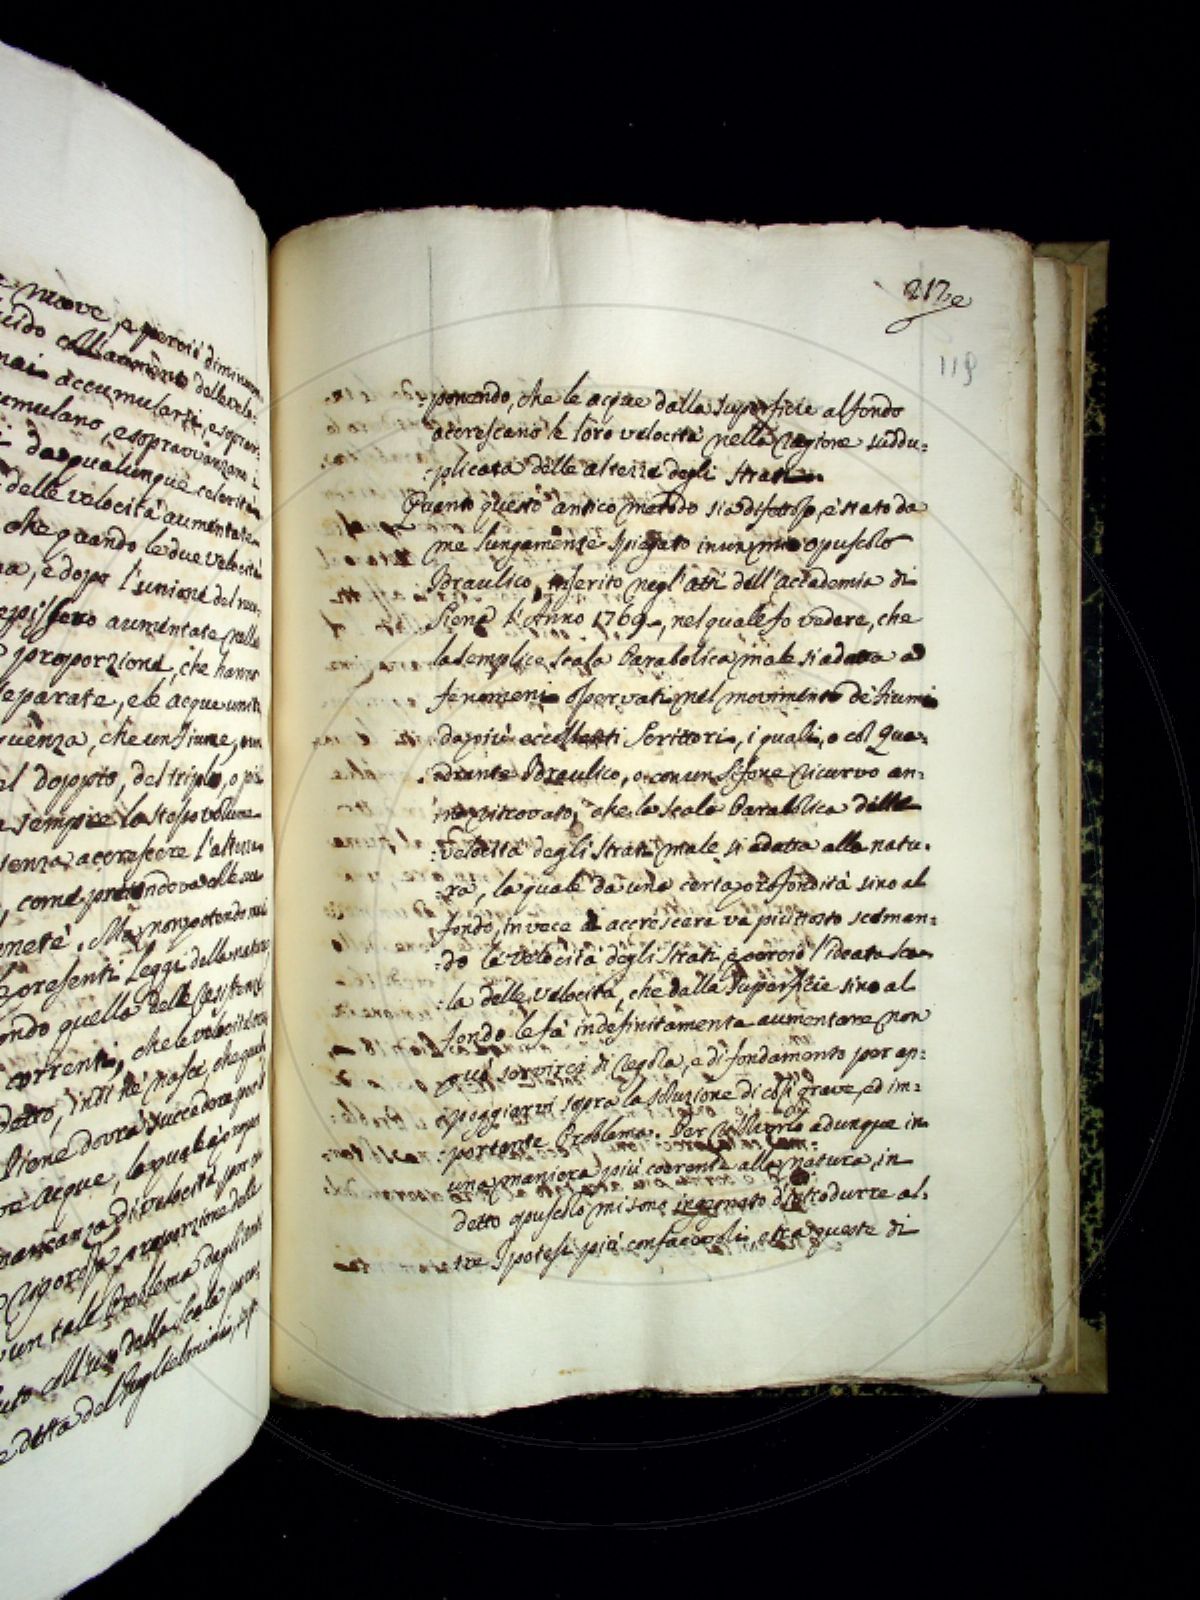 e nuove, e perciò diminuen
uido coll'aumento delle velo:
mai accumularsi, e soprav
umulano, e sopravvanzano i
da qualunque celerità
delle velocità aumentate
che quando le due velocità
na, e dopo l'unione del rec:
aumentate nella
proporzione, che hanno
separate, e le acque unite
guenza, che un fiume,
al doppio, del triplo, o più
a sempre lo stesso volume
senza accrescere l'altezza
come pretendeva
. Ma non potendo mai
presenti Leggi della natura
ondo quella delle resistenze
correnti, che le velocità
detto, indi ne nasce, che
Piene dovrà succadere
ve acque, la quale
mancanza di velocità, per
rigorosa proporzione delle
un tale Problema dagli
uto coll'uso della Scala
detta del Guglielmini,
212
119
:ponendo, che le acque dalla superficie al fondo
accrescano le loro velocità nella ragione suddu:
:plicata delle altezze degli strati.
Quanto questo antico metodo sia difettoso, è stato da
me lungamente spiegato in un mio opuscolo
Idraulico, inserito negl'atti dell'accademia di
Siena l'Anno 1769, nel quale fo vedere, che
la semplice scala Parabolica male si adatta ad
fenomeni osservati nel movimento de' fiumi
da più eccellenti Scrittori, i quali, o col Qua:
:drante Idraulico, o con un sifone ricurvo an:
:no ritrovato, che la scala Parabolica delle
:velocità degli strati male si adatta alla natu:
:ra, la quale da una certa profondità sino al
fondo, invece di accrescere va piuttosto sceman:
:do le velocità degli strati, e perciò l'ideata sca:
:la delle velocità, che dalla superficie sino al
fondo le fà indefinitamente aumentare non
può servirci di regola, e di fondamento per ap:
:poggiarvi sopra la soluzione di così grave, ed im:
:portante Problema. Per risolverlo adunque in
una maniera più coerente alla natura, in
detto opuscolo mi sono ingegnato d'introdurre al:
:tre Ipotesi più confacevoli, e tra queste di